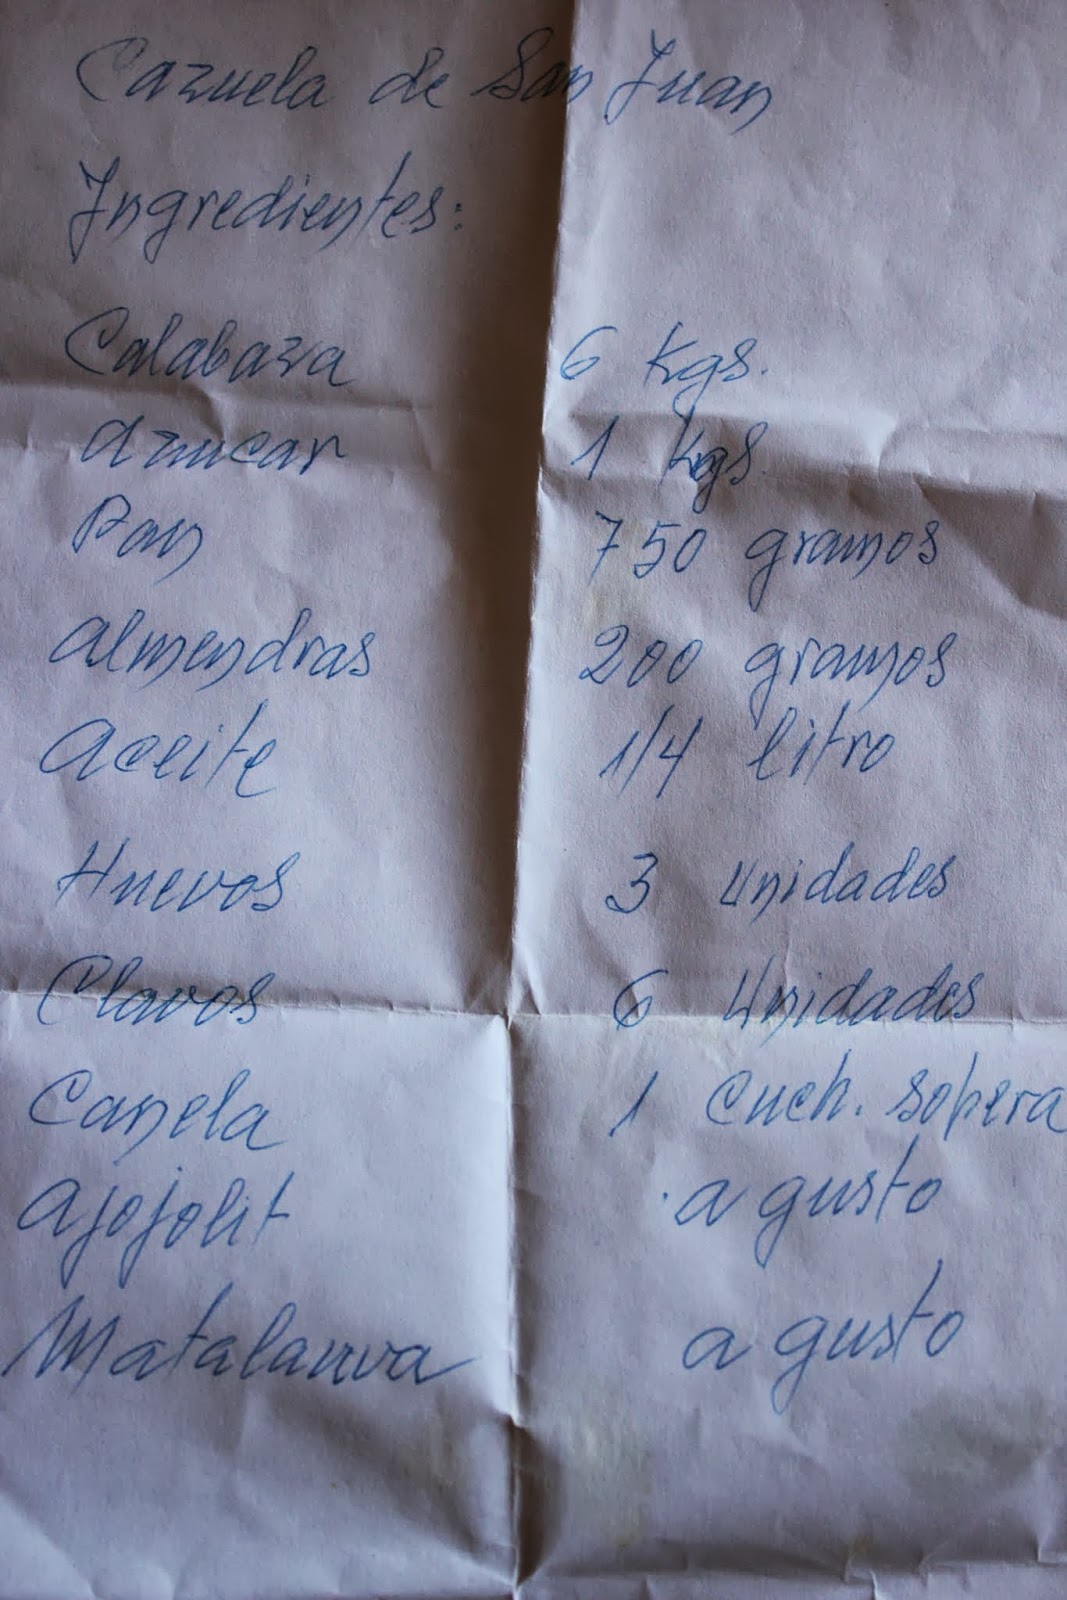 Cazuela de San Juan
Ingredientes:
Calabaza 6 Kgs.
azucar 1 kgs.
Pan 750 gramos
almendras 200 gramos
aceite 1/4 litro
Huevos 3 Unidades
Clavos 6 Unidades
Canela 1 cuch. sopera
ajojolit a gusto
Matalauva a gusto